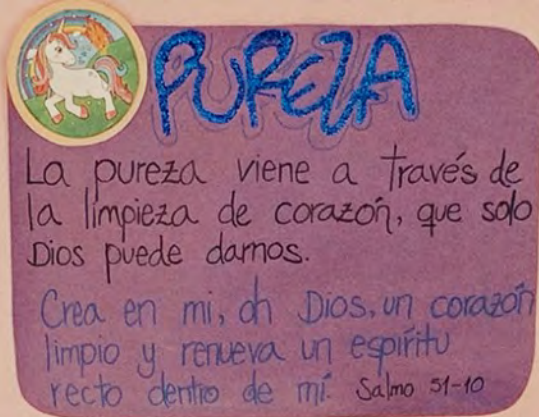 PUREZA
La pureza viene a través de
la limpieza de corazón, que solo
Dios puede darnos.
Crea en mi, oh Dios, un corazón
limpio y renueva un espíritu
recto dentro de mí. Salmo 51-10